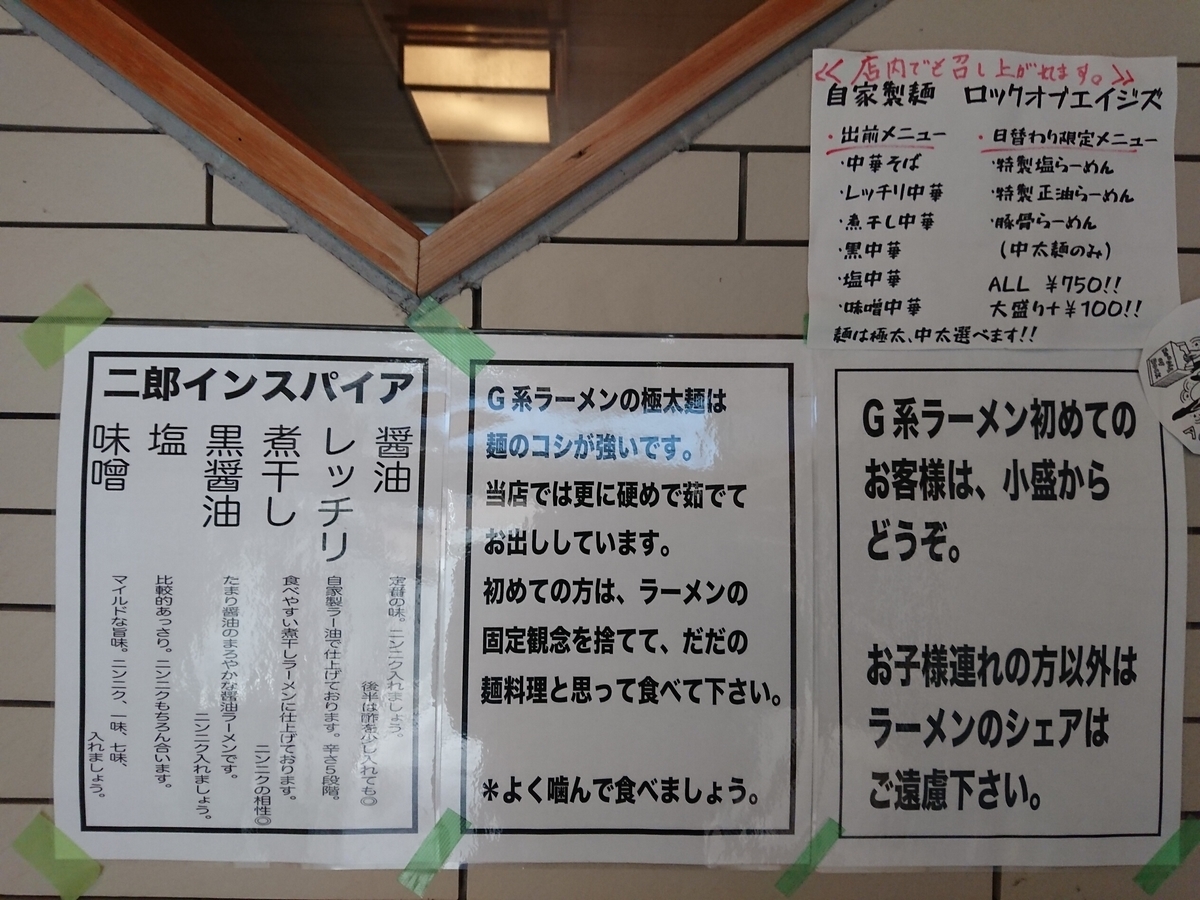 << 店内でも召し上がれます。 >>
自家製麺 ロックオブエイジズ
・出前メニュー
・中華そば
・レッチリ中華
・煮干し中華
・黒中華
・塩中華
・味噌中華
・日替わり限定メニュー
・特製塩らーめん
・特製正油らーめん
・豚骨らーめん
(中太麺のみ)
ALL ¥750!!
大盛り+¥100!!
麺は極太、中太選べます!!
二郎インスパイア
醤油
定番の味。ニンニク入れましょう。
後半は酢を少し入れても◎
レッチリ
自家製ラー油で仕上げております。辛さ5段階。
煮干し
食べやすい煮干しラーメンに仕上げております。
ニンニクの相性◎
黒醤油
たまり醤油のまろやかな醤油ラーメンです。
ニンニク入れましょう。
塩
比較的あっさり。ニンニクもちろん合います。
味噌
マイルドな旨味。ニンニク、一味、七味、
入れましょう。
G系ラーメンの極太麺は
麺のコシが強いです。
当店では更に硬めで茹でて
お出ししています。
初めての方は、ラーメンの
固定観念を捨てて、だだの
麺料理と思って食べて下さい。
＊よく噛んで食べましょう。
G系ラーメン初めての
お客様は、小盛から
どうぞ。
お子様連れの方以外は
ラーメンのシェアは
ご遠慮下さい。